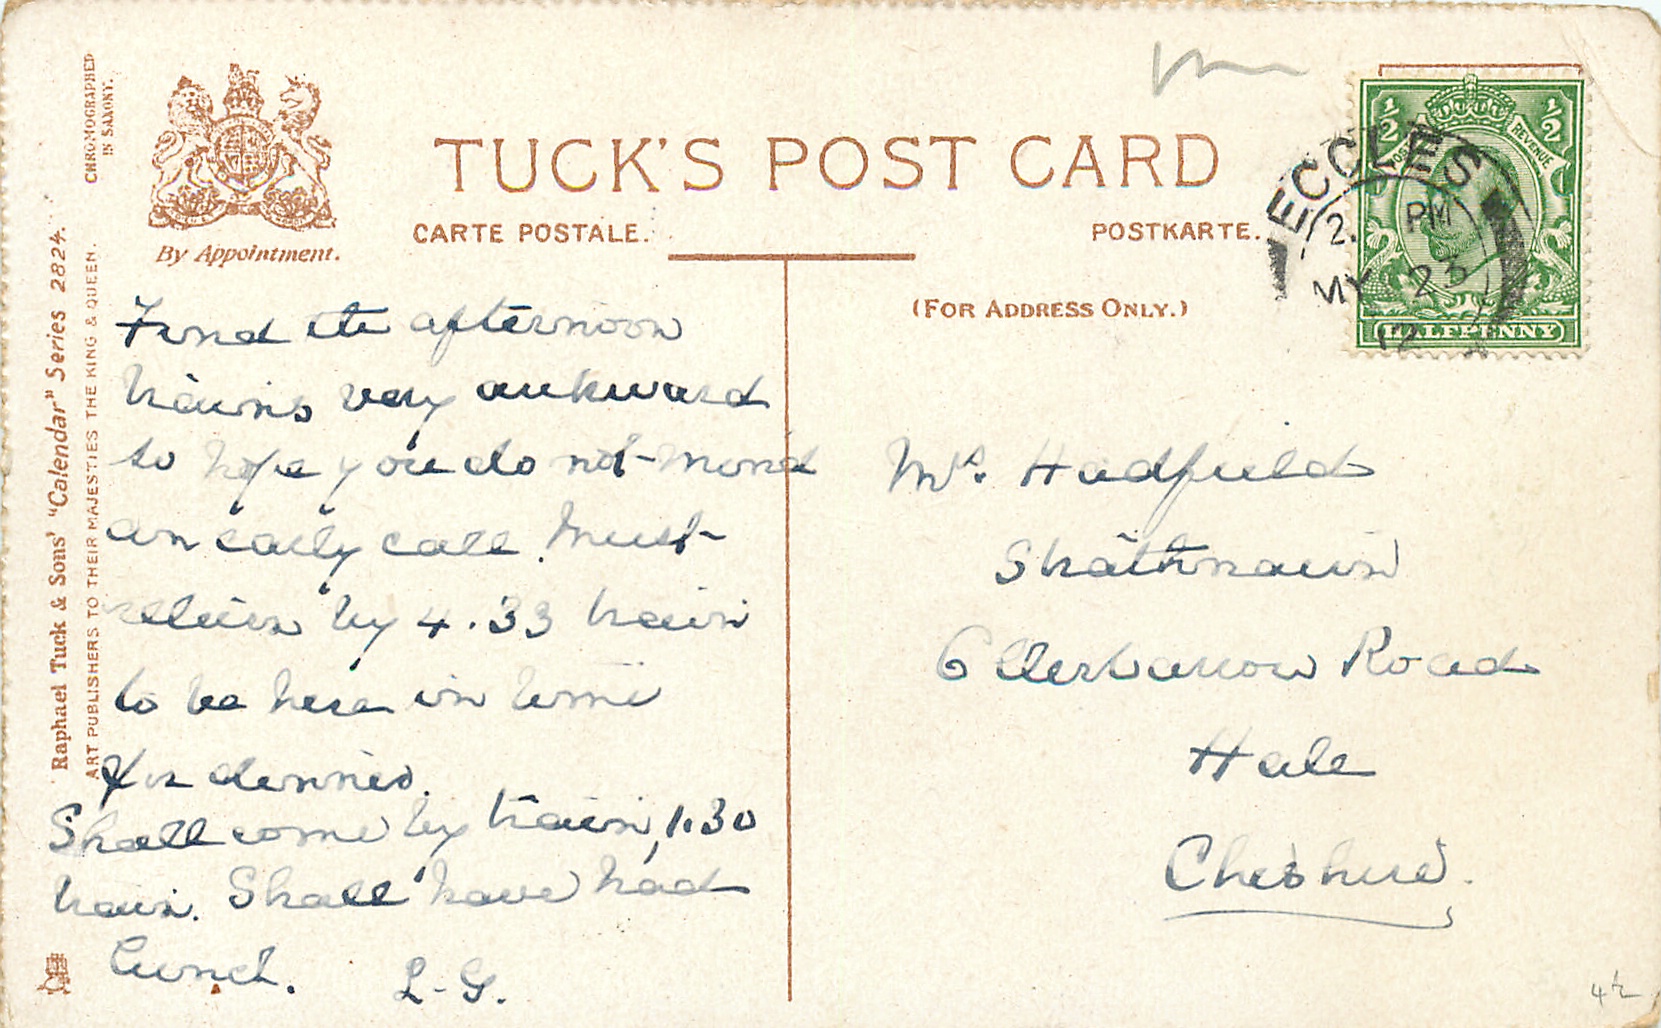 CHROMOGRAPHED
IN SAXONY.
Raphael Tuck & Sons' "Calendar" Series 2824.
ART PUBLISHERS TO THEIR MAJESTIES THE KING & QUEEN.
By Appointment.
TUCK'S POST CARD
CARTE POSTALE.
POSTKARTE.
(FOR ADDRESS ONLY.)
Find the afternoon
trains very awkward
so hope you do not mind
an early call. Must
return by 4.33 train
to be here in time
for dinner.
Shall come by train, 1.30
train. Shall have had
lunch. L-G.
1/2 1/2
REVENUE
HALFPENNY
ECCLES
2. PM
MY 23
12
Mrs. Hadfield
Strathnairn
Ellerbarrow Road
Hale
Cheshire.
4½